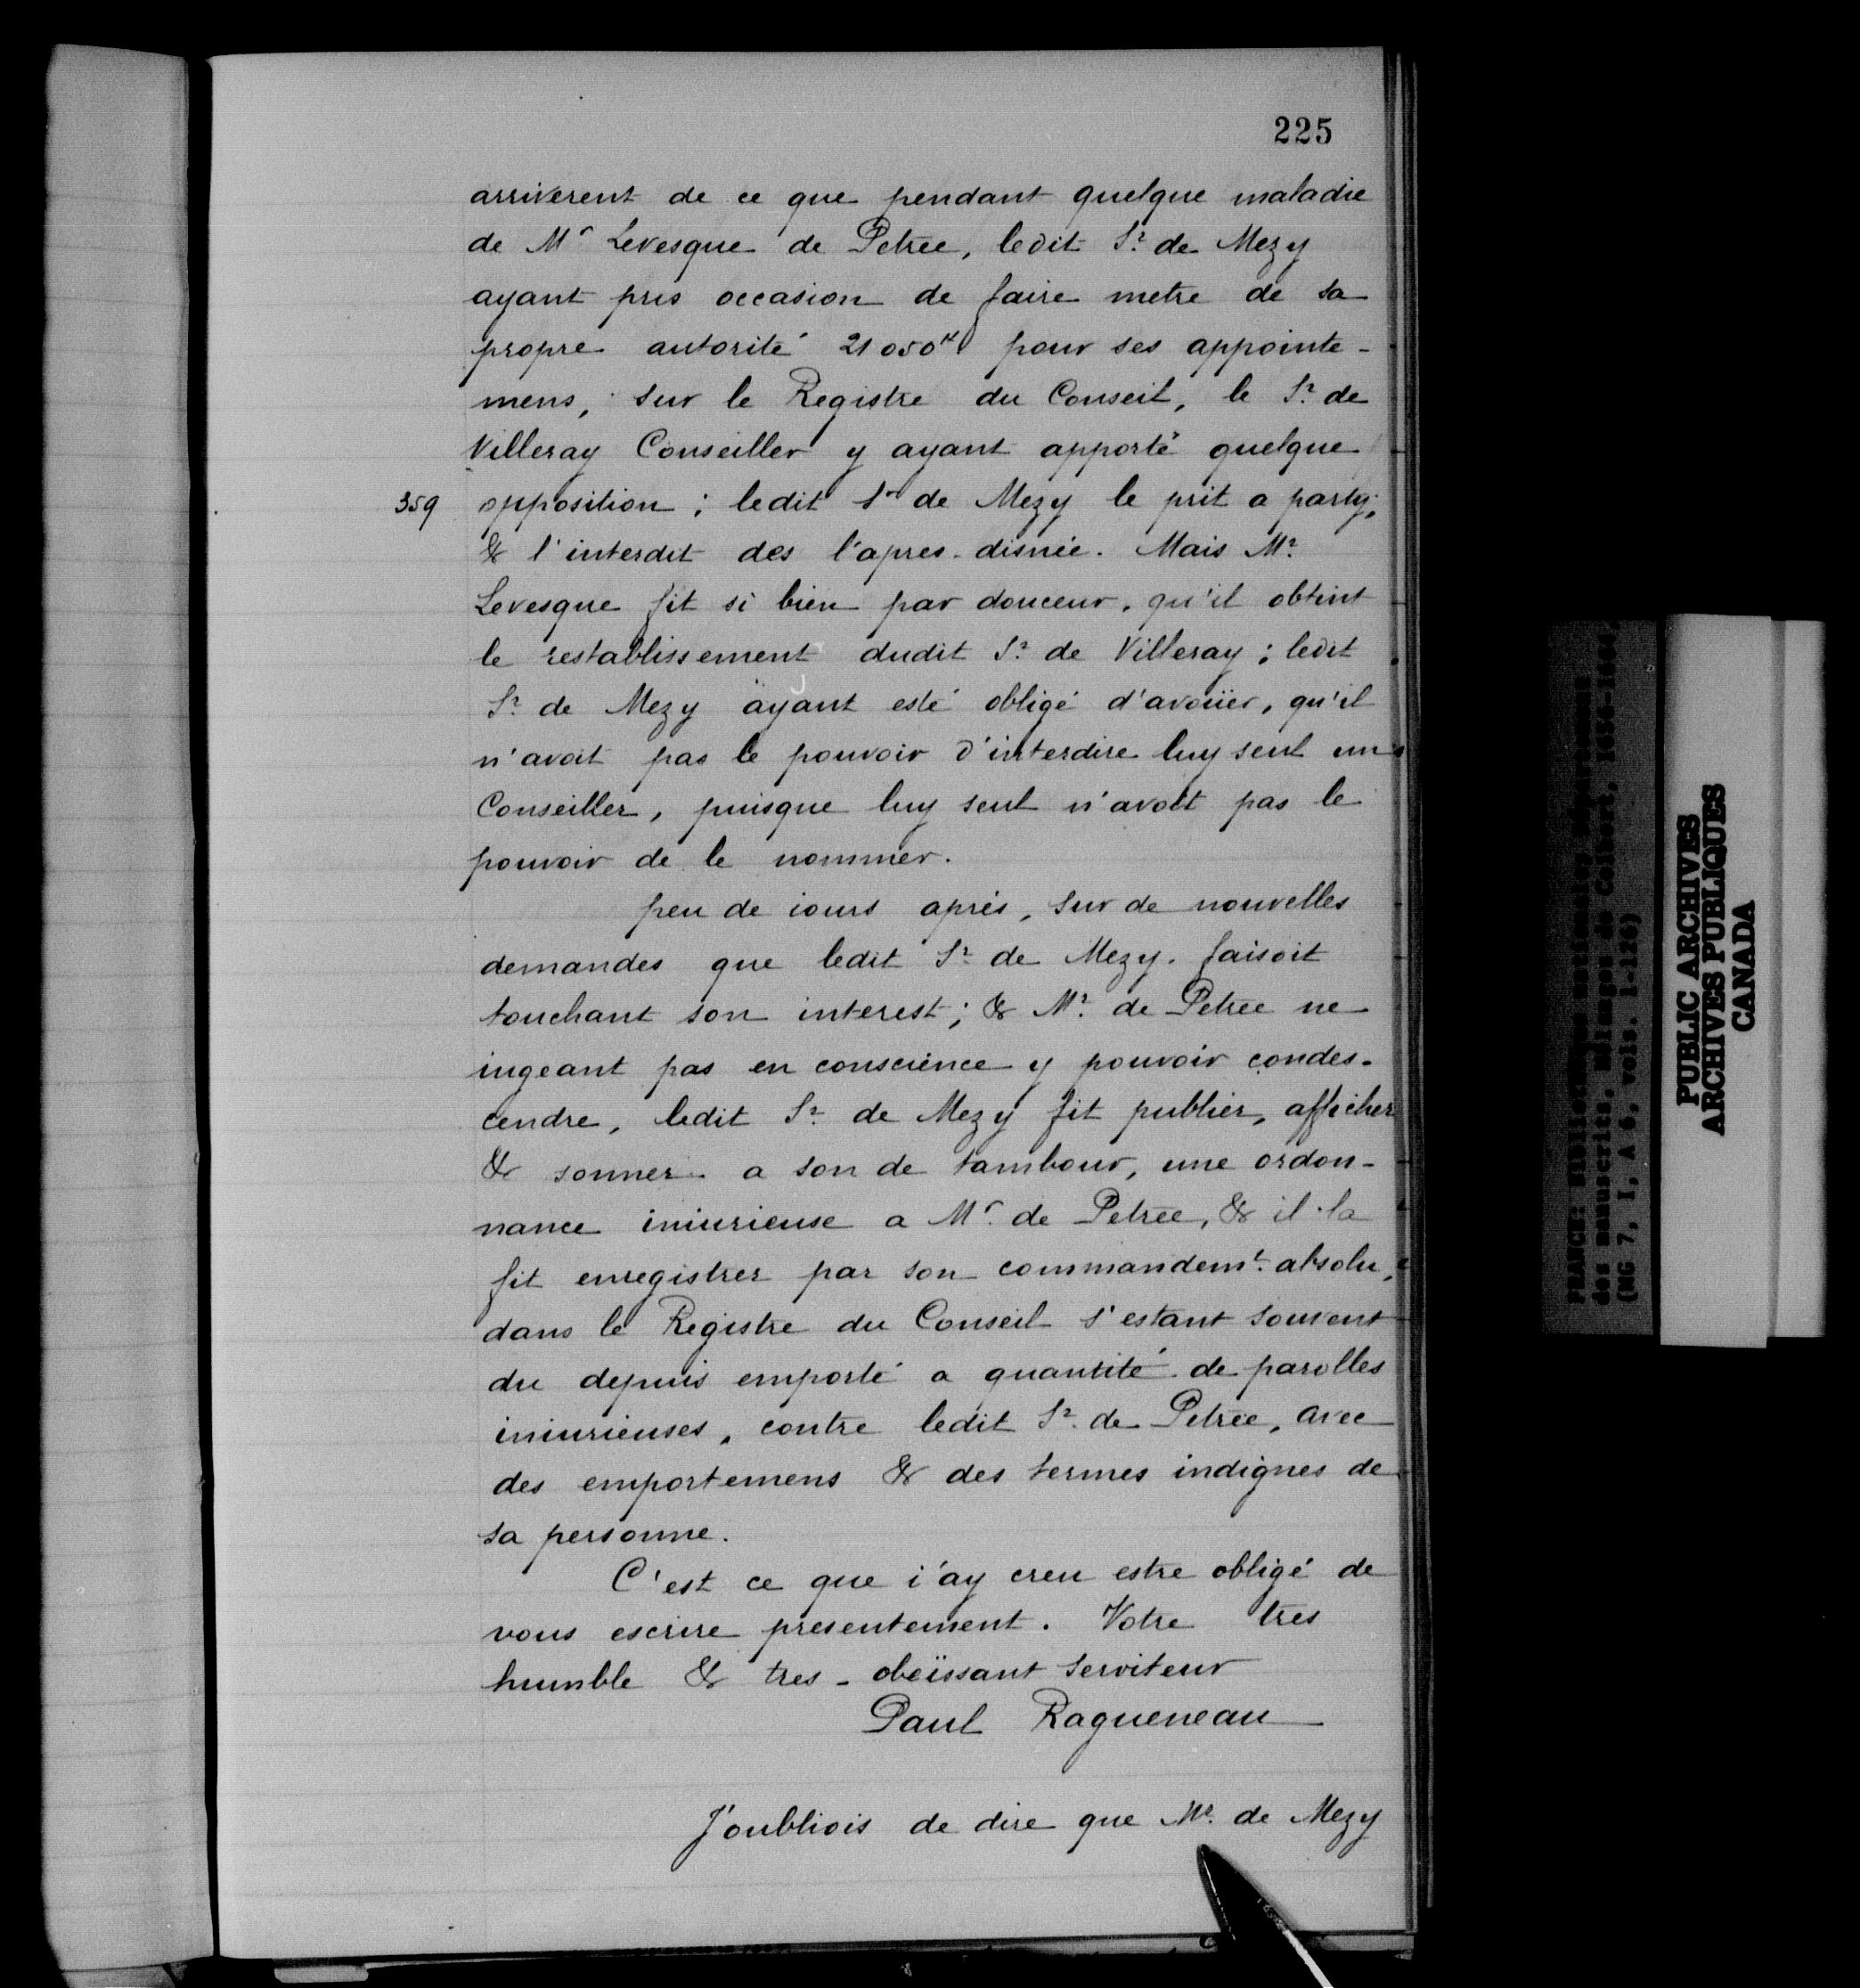 225
arriverent de ce que pendant quelque maladie
de Mr Levesque de Petrée, ledit Sr. de Mezy
ayant pris occasion de faire metre de sa
propre autorité 21050tt pour ses appointe-
mens, sur le Registre du Conseil, le Sr. de
Villeray Conseiller y ayant apporté quelque
359 opposition ; ledit Sr de Mezy le prit a party,
& l'interdit des l'apres-disnée. Mais Mr.
Levesque fit si bien par douceur, qu'il obtint
le restablissement dudit Sr. de Villeray ; ledit
Sr. de Mezy äyant esté obligé d'avoüer, qu'il
n'avoit pas le pouvoir d'interdire luy seul un
Conseiller, puisque luy seul n'avoit pas le
pouvoir de le nommer.
peu de iours aprés, sur de nouvelles
demandes que ledit Sr. de Mezy. faisoit
touchant son interest ; & Mr. de Petrée ne
iugeant pas en conscience y pouvoir condes-
cendre, ledit Sr. de Mezy fit publier, afficher
& sonner a son de tambour, une ordon-
nance iniurieuse a Mr. de Petrée, & il la
fit enregistrer par son commandemt. absolu,
dans le Registre du Conseil s'estant souvent
du depuis emporté a quantité de parolles
iniurieuses, contre ledit Sr. de Petrée, avec
des emportemens & des termes indignes de
sa personne.
C'est ce que i'ay creu estre obligé de
vous escrire presentement. Votre tres
humble & tres-obeïssant serviteur
Paul Ragueneau
J'oubliois de dire que Mr. de Mezy
PUBLIC ARCHIVES
ARCHIVES PUBLIQUES
CANADA
des manuscrits, Mélanges de Colbert,
(MG 7, I, A 6, vols. 1-126)